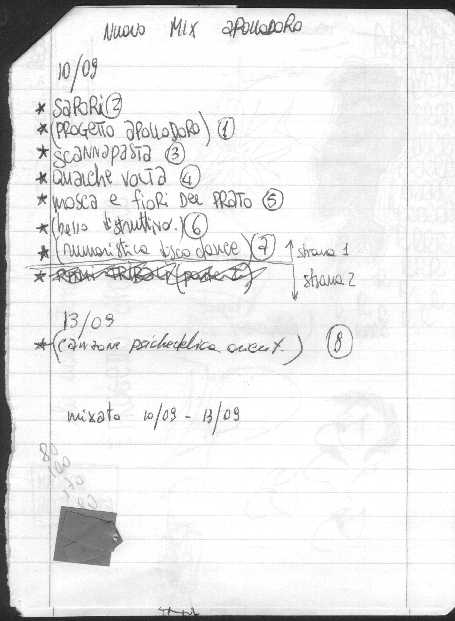 NUOVO MIX APOLLODORO
10/09
* SAPORI (2)
* (PROGETTO APOLLODORO) (1)
* SCANNAPASTA (3)
* QUALCHE VOLTA (4)
* MOSCA E FIORI DEL PRATO (5)
* (bello distruttivo.) (6)
* (rumoristica disco dance) (7)
strana 1
* RITMI TRIBALI (parte 2)
strana 2
13/09
* (canzone psichedelica orient.) (8)
mixato 10/09 - 13/09